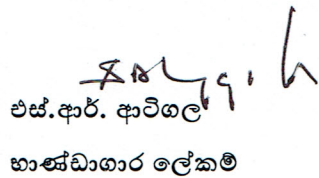 එස්.ආර්. ආටිගල
භාණ්ඩාගාර ලේකම්